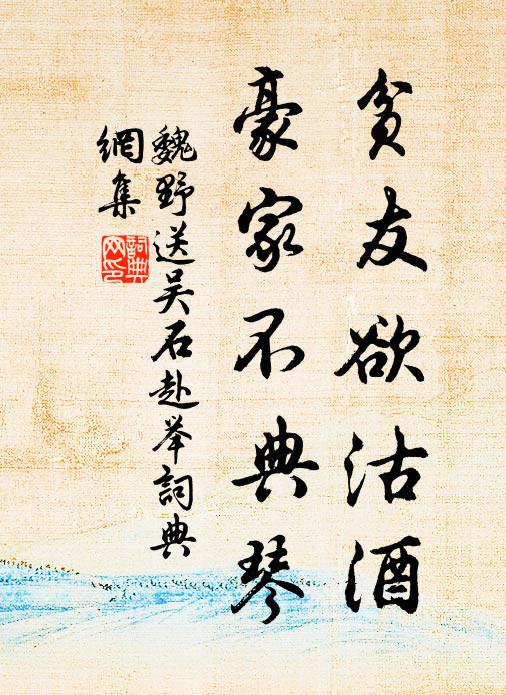 貧友欲沽酒
豪家不典琴
魏野送吴石赴举詞典
網集
詞典
网印